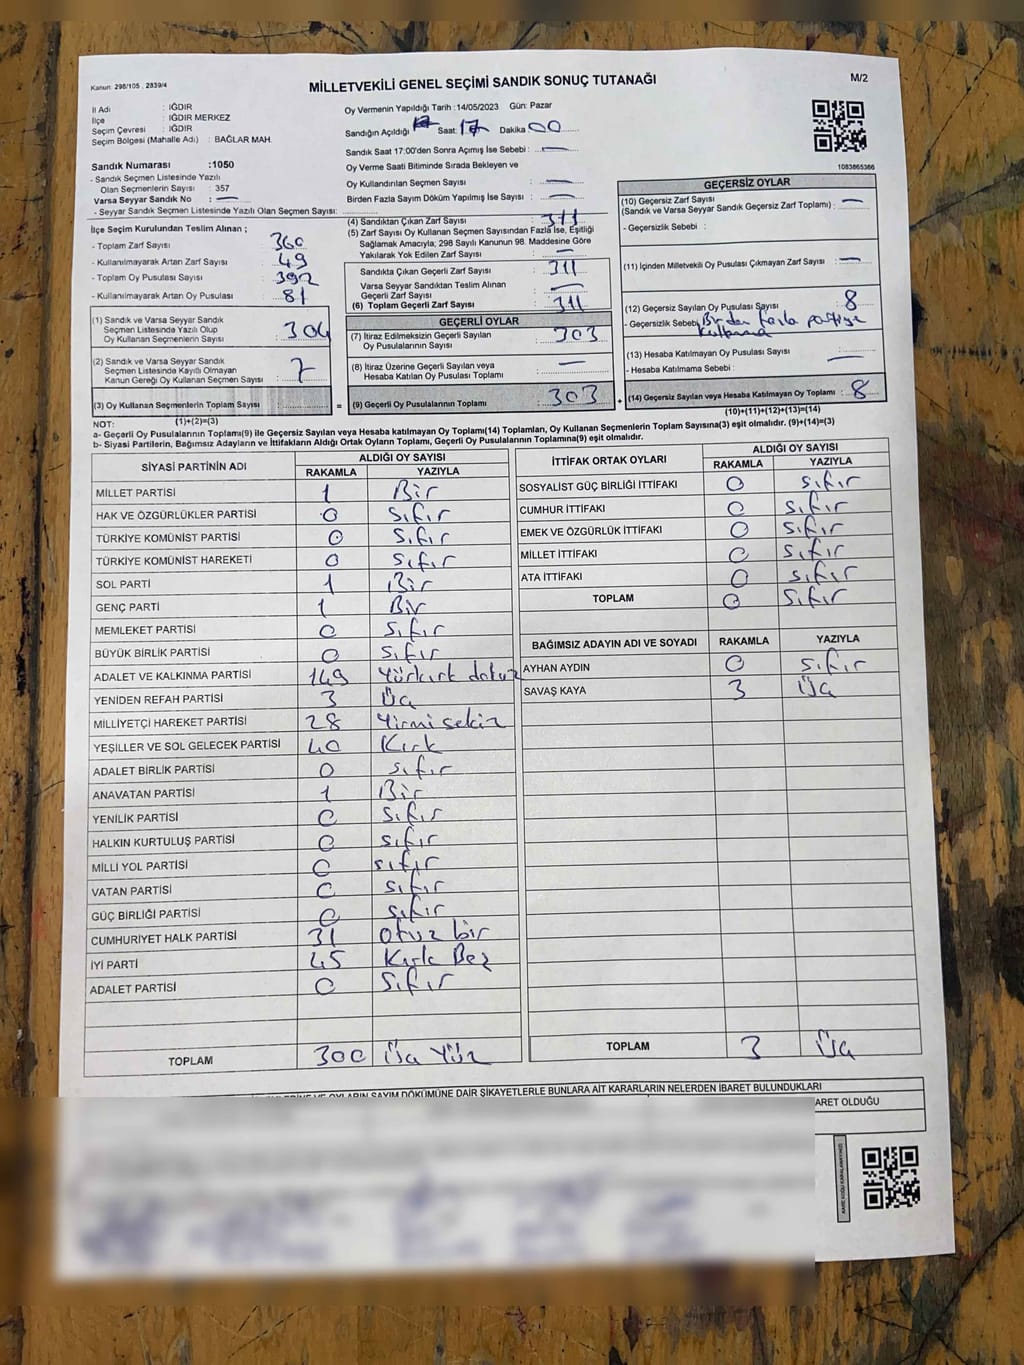 Kanun: 298/105 , 2839/4
MİLLETVEKİLİ GENEL SEÇİMİ SANDIK SONUÇ TUTANAĞI
M/2
İl Adı : IĞDIR
İlçe : IĞDIR MERKEZ
Seçim Çevresi : IĞDIR
Seçim Bölgesi (Mahalle Adı) : BAĞLAR MAH.
Sandık Numarası :1050
- Sandık Seçmen Listesinde Yazılı
Olan Seçmenlerin Sayısı : 357
Varsa Seyyar Sandık No : —
- Seyyar Sandık Seçmen Listesinde Yazılı Olan Seçmen Sayısı:
İlçe Seçim Kurulundan Teslim Alınan ;
- Toplam Zarf Sayısı : 360
- Kullanılmayarak Artan Zarf Sayısı : 49
- Toplam Oy Pusulası Sayısı : 392
- Kullanılmayarak Artan Oy Pusulası : 81
(1) Sandık ve Varsa Seyyar Sandık
Seçmen Listesinde Yazılı Olup
Oy Kullanan Seçmen Sayısı : 304
(2) Sandık ve Varsa Seyyar Sandık
Seçmen Listesinde Kayıtlı Olmayan
Kanun Gereği Oy Kullanan Seçmen Sayısı : 7
(3) Oy Kullanan Seçmenlerin Toplam Sayısı :
(1)+(2)=(3)
Oy Vermenin Yapıldığı Tarih :14/05/2023 Gün: Pazar
Sandığın Açıldığı Saat: 17 Dakika 00
Sandık Saat 17:00'den Sonra Açımış İse Sebebi : —
Oy Verme Saati Bitiminde Sırada Bekleyen ve
Oy Kullandırılan Seçmen Sayısı : —
Birden Fazla Sayım Döküm Yapılmış İse Sayısı : —
(4) Sandıktan Çıkan Zarf Sayısı : 311
(5) Zarf Sayısı Oy Kullanan Seçmen Sayısından Fazla İse, Eşitliği
Sağlamak Amacıyla, 298 Sayılı Kanunun 98. Maddesine Göre
Yakılarak Yok Edilen Zarf Sayısı : —
Sandıkta Çıkan Geçerli Zarf Sayısı : 311
Varsa Seyyar Sandıktan Teslim Alınan
Geçerli Zarf Sayısı : —
(6) Toplam Geçerli Zarf Sayısı : 311
GEÇERLİ OYLAR
(7) İtiraz Edilmeksizin Geçerli Sayılan
Oy Pusulalarının Sayısı : 303
(8) İtiraz Üzerine Geçerli Sayılan veya
Hesaba Katılan Oy Pusulası Toplamı : —
= (9) Geçerli Oy Pusulalarının Toplamı : 303 +
1083665366
GEÇERSİZ OYLAR
(10) Geçersiz Zarf Sayısı
(Sandık ve Varsa Seyyar Sandık Geçersiz Zarf Toplamı) : —
- Geçersizlik Sebebi :
(11) İçinden Milletvekili Oy Pusulası Çıkmayan Zarf Sayısı : —
(12) Geçersiz Sayılan Oy Pusulası Sayısı : 8
- Geçersizlik Sebebi Birden fazla partiye
(13) Hesaba Katılmayan Oy Pusulası Sayısı : —
- Hesaba Katılmama Sebebi :
(14) Geçersiz Sayılan veya Hesaba Katılmayan Oy Toplamı : 8
(10)+(11)+(12)+(13)=(14)
NOT:
a- Geçerli Oy Pusulalarının Toplamı(9) ile Geçersiz Sayılan veya Hesaba katılmayan Oy Toplamı(14) Toplamları, Oy Kullanan Seçmenlerin Toplam Sayısına(3) eşit olmalıdır. (9)+(14)=(3)
b- Siyasi Partilerin, Bağımsız Adayların ve İttifakların Aldığı Ortak Oyların Toplamı, Geçerli Oy Pusulalarının Toplamına(9) eşit olmalıdır.
SİYASİ PARTİNİN ADI ALDIĞI OY SAYISI
RAKAMLA YAZIYLA
MİLLET PARTİSİ 1 Bir
HAK VE ÖZGÜRLÜKLER PARTİSİ 0 Sıfır
TÜRKİYE KOMÜNİST PARTİSİ 0 Sıfır
TÜRKİYE KOMÜNİST HAREKETİ 0 Sıfır
SOL PARTİ 1 Bir
GENÇ PARTİ 1 Bir
MEMLEKET PARTİSİ 0 Sıfır
BÜYÜK BİRLİK PARTİSİ 0 Sıfır
ADALET VE KALKINMA PARTİSİ 149 Yüzkırk dokuz
YENİDEN REFAH PARTİSİ 3 Üç
MİLLİYETÇİ HAREKET PARTİSİ 28 Yirmi sekiz
YEŞİLLER VE SOL GELECEK PARTİSİ 40 Kırk
ADALET BİRLİK PARTİSİ 0 Sıfır
ANAVATAN PARTİSİ 1 Bir
YENİLİK PARTİSİ 0 Sıfır
HALKIN KURTULUŞ PARTİSİ 0 Sıfır
MİLLİ YOL PARTİSİ 0 Sıfır
VATAN PARTİSİ 0 Sıfır
GÜÇ BİRLİĞİ PARTİSİ 0 Sıfır
CUMHURİYET HALK PARTİSİ 31 Otuz bir
İYİ PARTİ 45 Kırk Beş
ADALET PARTİSİ 0 Sıfır
TOPLAM 300 Üç Yüz
İTTİFAK ORTAK OYLARI ALDIĞI OY SAYISI
RAKAMLA YAZIYLA
SOSYALİST GÜÇ BİRLİĞİ İTTİFAKI 0 Sıfır
CUMHUR İTTİFAKI 0 Sıfır
EMEK VE ÖZGÜRLÜK İTTİFAKI 0 Sıfır
MİLLET İTTİFAKI 0 Sıfır
ATA İTTİFAKI 0 Sıfır
TOPLAM 0 Sıfır
BAĞIMSIZ ADAYIN ADI VE SOYADI RAKAMLA YAZIYLA
AYHAN AYDIN 0 Sıfır
SAVAŞ KAYA 3 Üç
TOPLAM 3 Üç
SAYIM DÖKÜMÜNE DAİR ŞİKAYETLERLE BUNLARA AİT KARARLARIN NELERDEN İBARET BULUNDUKLARI
OLDUĞU